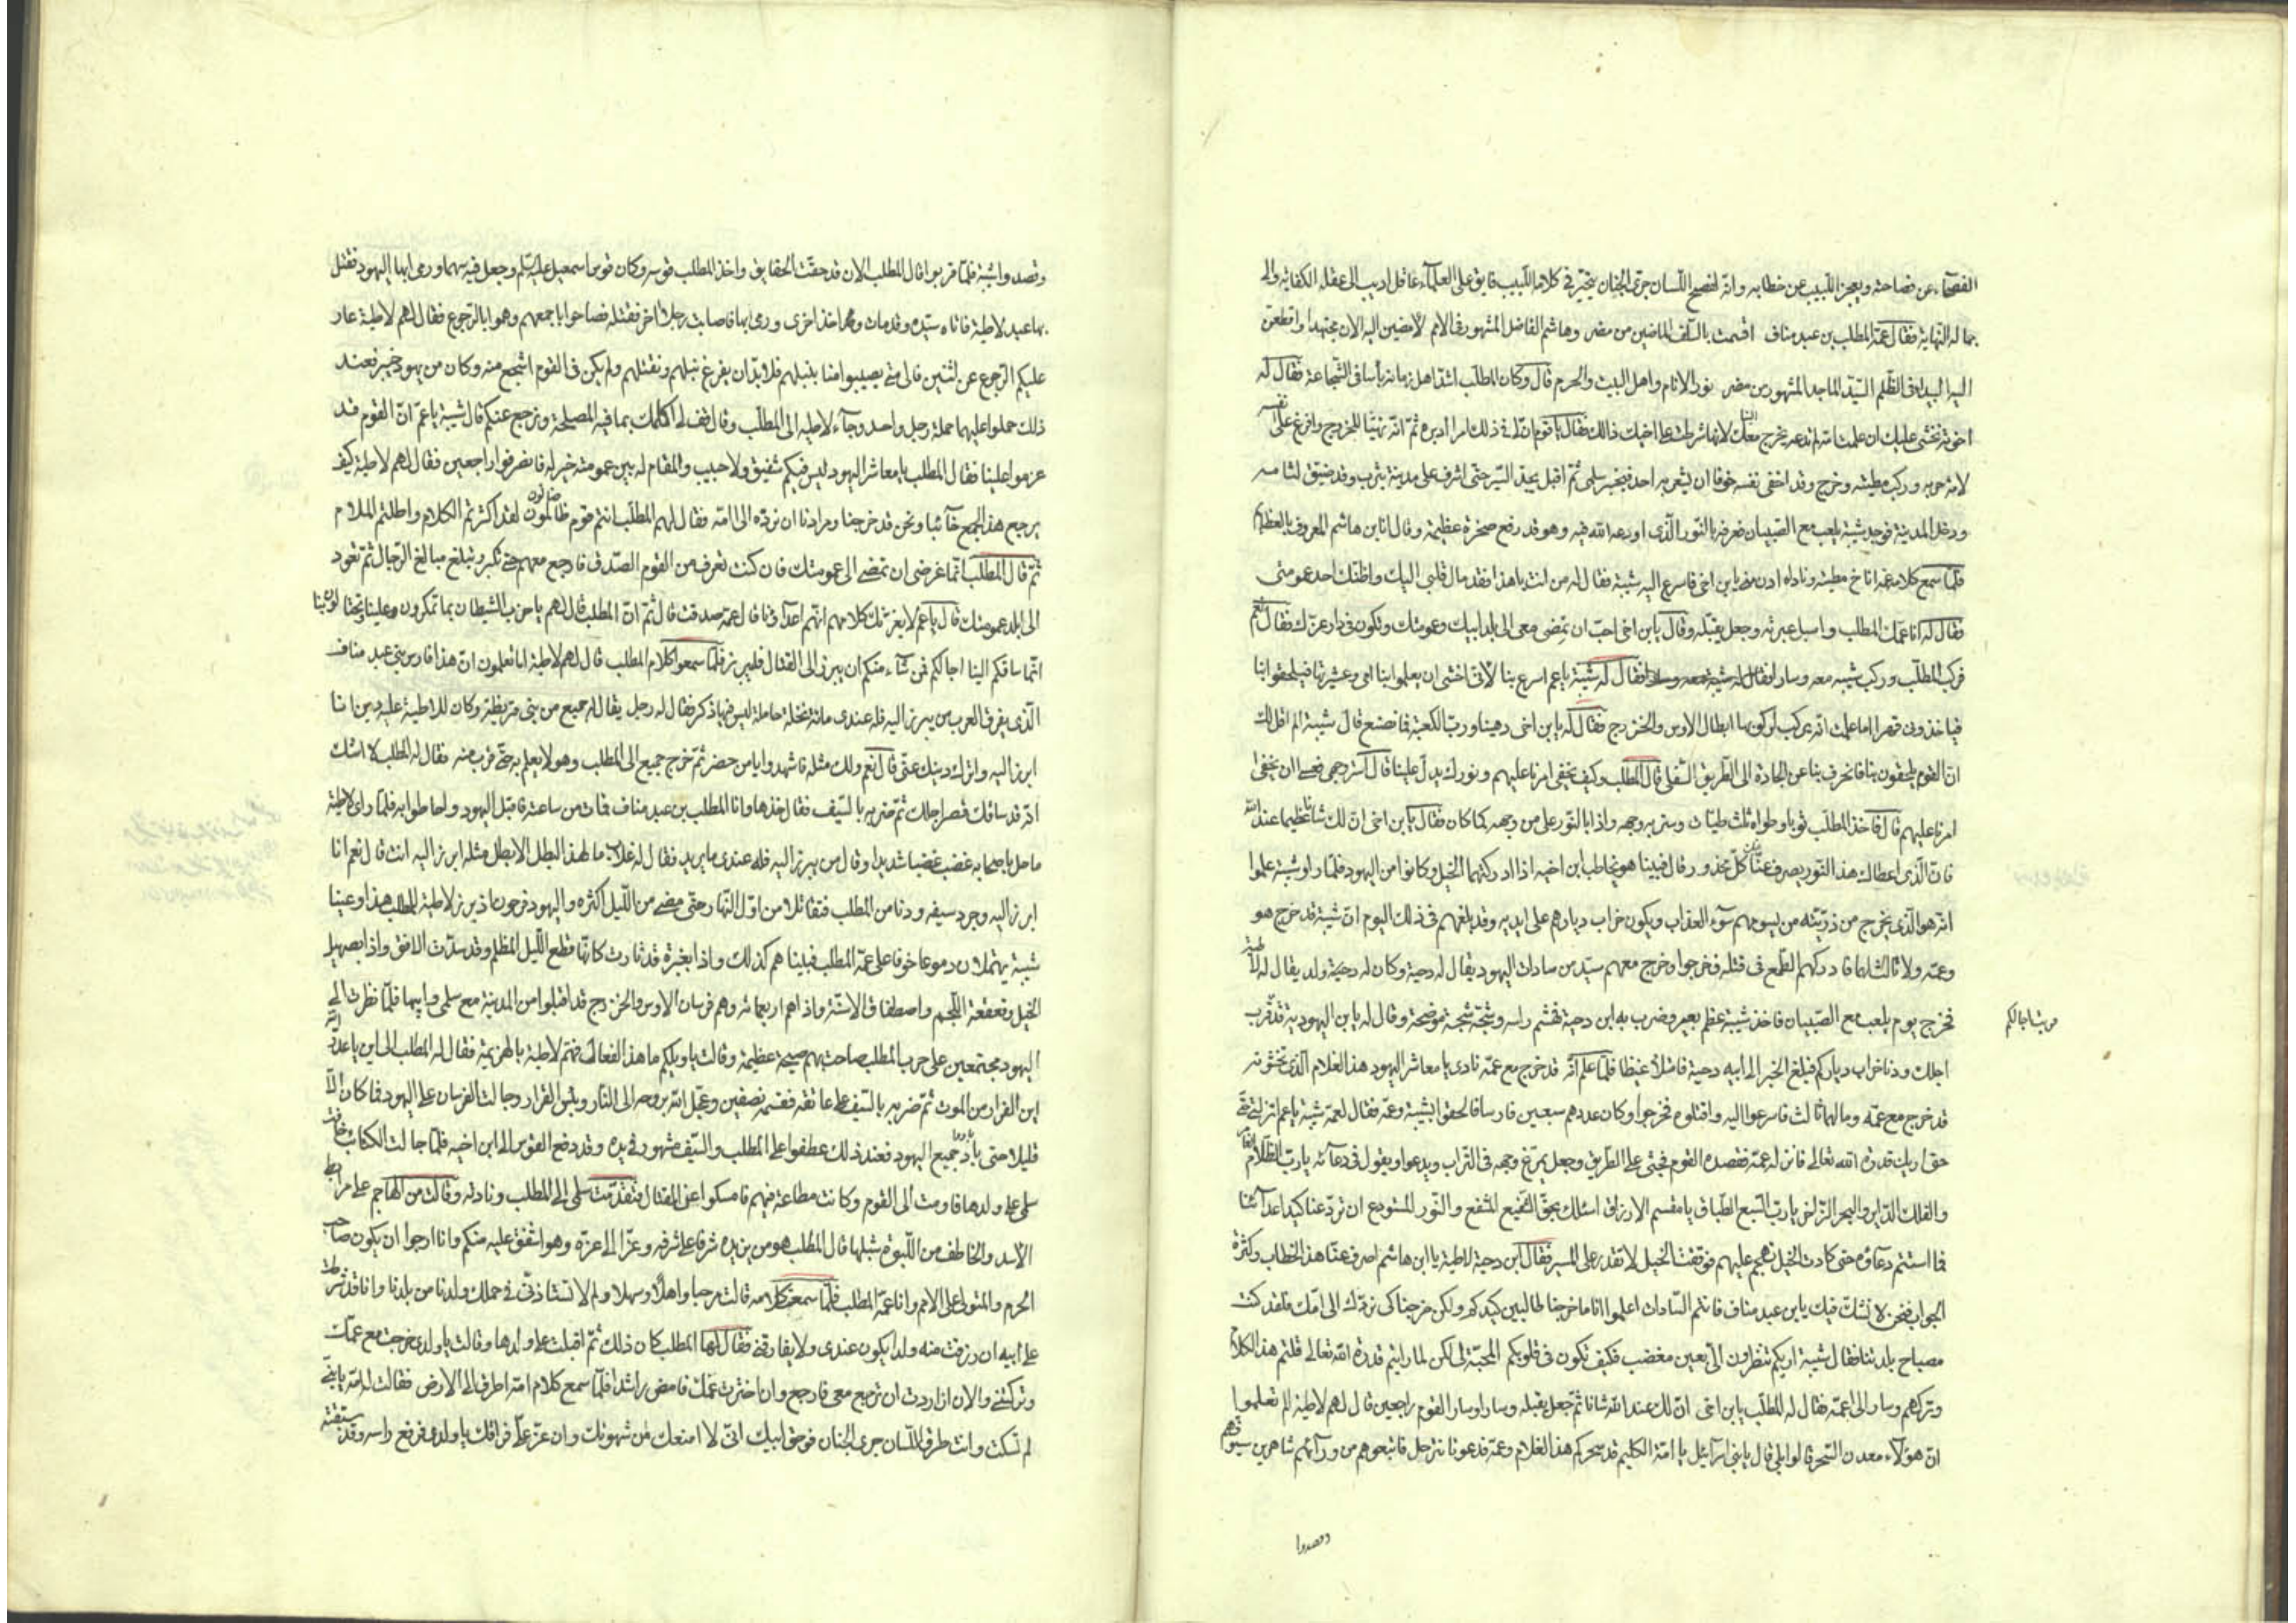 الفصحاء عن فصاحته ويعجز اللبيب عن خطابه وانه لفصيح اللسان جرى الجنان يتحير فى كلامه اللبيب فايق على العلماء عاقل اديب الى عقله الكفاية والى
بماله النهاية فقال عمه المطلب بن عبد مناف اقسمت بالسلف الماضين من مضر وهاشم الفاضل المشهور فى الامم لامضين اليه الان مجتهدا واقطعن
اليه البيداء فى الظلم السيد الماجد المشهور من مضر نور الانام واهل البيت والحرم قال وكان المطلب اشد اهل زمانه باسا فى الشجاعة فقال له
اخوته نخشى عليك ان علمت امه لم تدعه يخرج معك لانها شرطت على اخيك ذالك فقال يا قوم ان لى فى ذلك امرا ادبره ثم انه تهيا للخروج وافرغ على نفسه
لامة حربه وركب مطيته وخرج وقد اخفى نفسه خوفا ان يشعر به احد فيخبر سلمى ثم اقبل يجد السير حتى اشرف على مدينة يثرب وقد ضيق لثامه
ودخل المدينة فوجد شيبة يلعب مع الصبيان فعرفه بالنور الذى اودعه الله فيه وهو قد رفع صخرة عظيمة وقال انا ابن هاشم المعروف بالعظايم
فلما سمع كلامه عمه اناخ مطيته وناداه ادن منى يا بن اخى فاسرع اليه شيبة فقال له من انت يا هذا فقد مال قلبى اليك واظنك احد عمومتى
فقال له انا عمك المطلب واسبل عبرته وجعل يقبله وقال يا بن اخى احب ان تمضى معى الى بلد ابيك وعمومتك وتكون فى دار عزك فقال نعم
فركب المطلب وركب شيبه معه وسارا فقال له شيبة يا عم اسرع بنا لانى اخشى ان يعلموا بنا امى وعشيرتها فيلحقوا بنا
فياخذونى قهرا اما علمت انه يركب لركوبها ابطال الاوس والخزرج فقال له يا بن اخى دهينا ورب الكعبة فما نصنع قال شيبة الم اقل لك
ان القوم يلحقون بنا فانحرف بنا عن الجادة الى الطريق السفلى قال المطلب وكيف يخفى امرنا عليهم ونورك يدل علينا قال استر وجهى فعسى ان يخفى
امرنا عليهم قال فاخذ المطلب ثوبا وطواه ثلث طيات وستر به وجهه واذا بالنور على من وجهه كما كان فقال يا بن اخى ان لك شانا عظيما عند الله
فان الذى اعطاك هذا النور يصرف عنا كل محذور قال فبينا هو يخاطب ابن اخيه اذا ادركتهما الخيل وكانوا من اليهود فلما راوا شيبة علموا
انه هو الذى يخرج من ذريته من يسومهم سوء العذاب ويكون خراب ديارهم على ايديه وقد بلغهم فى ذلك اليوم ان شيبة قد خرج هو
وعمه ولا ثالث لهما فادركهم الطمع فى قتله فخرجوا وخرج معهم سيد من سادات اليهود يقال له دحية وكان له دحية ولد يقال له لاطية
فخرج يوم يلعب مع الصبيان فاخذ شيبة عظم بعير وضرب به ابن دحية فهشم راسه وشجه شجة موضحة وقال له يا بن اليهودية قد قرب
اجلك ودنا خراب دياركم فبلغ الخبر الى ابيه دحية فامتلأ غيظا فلما علم انه قد خرج مع عمه نادى يا معاشر اليهود هذا الغلام الذى تخشونه
قد خرج مع عمه وما لهما ثالث فاسرعوا اليه واقتلوه فخرجوا وكان عددهم سبعين فارسا فالحقوا بشيبة وعمه فقال لعمه شيبة يا عم انزلنى
حتى اريك قدرة الله تعالى فانزله عمه فقصده القوم فجثى على الطريق وجعل يمرغ وجهه فى التراب ويدعوا ويقول فى دعائه يا رب الظلام الغامر
والفلك الداير والبحر الزاخر يا رب السبع الطباق يا مقسم الارزاق اسئلك بحق الشفيع المشفع والنور المستودع ان ترد عنا كيد اعدائنا
فما استتم دعاؤه حتى كادت الخيل تهجم عليهم فوقفت الخيل لا تقدر على المسير فقال ابن دحية لاطية يا ابن هاشم اصرف عنا هذا الخطاب وكثرة
الجواب فنحن لا نشك فيك يا بن عبد مناف فانتم السادات اعلموا اننا ما خرجنا طالبين كيدكم ولكن خرجنا كى نردك الى امك فلقد كنت
مصباح بلدتنا فقال شيبة اريكم تنظرون الى بعين مغضب فكيف تكون فى قلوبكم المحبة لى لكن لما رايتم قدرة الله تعالى قلتم هذا الكلام
وتركهم وسار الى عمه فقال له المطلب يا بن اخى ان لك عند الله شانا ثم جعل يقبله وسارا وسار القوم راجعين قال لهم لاطية الم تعلموا
ان هؤلاء معدن السحر قالوا بلى قال يا بنى اسرآئيل يا امة الكليم قد سحركم هذا الغلام وعمه فدعونا نترجل فاتبعوهم من ورآئهم شاهرين سيوفهم
وقصدوا
وقصدوا شيبة فلما قربوا قال المطلب الان قد حقت الحقايق واخذ المطلب قوسه وكان قوس اسمعيل عليه السلم وجعل فيه سهما ورمى بها اليهود فقتل
بها عبد لاطية فاتاه سيده وقد مات ثم اخذ اخرى ورمى بها فاصابت رجلا اخر فقتله فصاحوا باجمعهم وهموا بالرجوع فقال لهم لاطية عار
عليكم الرجوع عن اثنين فالى متى يصيبوا منا بنبلهم فلا بد ان يفرغ نبلهم ونقتلهم ولم يكن فى القوم اشجع منه وكان من يهود خيبر فعند
ذلك حملوا عليهما حملة رجل واحد وجاء لاطيه الى المطلب وقال قف لى اكلمك بما فيه المصلحة ونرجع عنكم قال شيبة يا عم ان القوم قد
عزموا علينا فقال المطلب يا معاشر اليهود ليس فيكم شفيق ولا حبيب والمقام له بين عمومته خير له فانصرفوا راجعين فقال لهم لاطية كيف
يرجع هذا الجمع خائبا ونحن قد خرجنا ومرادنا ان نرده الى امه فقال لهم المطلب انتم قوم ظالمون لقد اكثرتم الكلام واطلتم الملام
ثم قال المطلب انما غرضى ان تمضى الى عمومتك فان كنت تعرف من القوم الصدق فارجع معهم حتى تكبر وتبلغ مبالغ الرجال ثم تعود
الى بلد عمومتك قال يا عم لا يغرنك كلامهم انهم اعداؤنا قال عمه صدقت قال ثم ان المطلب قال لهم يا حزب الشيطان بنا تمكرون وعلينا تحتالون
انما ساقكم الينا اجالكم فمن شاء منكم ان يبرز الى القتال فليبرز فلما سمعوا كلام المطلب قال لهم لاطية اما تعلمون ان هذا فارس بنى عبد مناف
الذى يفرق العرب من يبرز اليه فله عندى مائة نخلة حاملة ليس فيها ذكر فقال له رجل يقال له جميع من بنى قريظة وكان للاطية عليه دين انا
ابرز اليه واترك دينك عنى قال نعم ولك مثله فاشهدوا يا من حضر ثم خرج جميع الى المطلب وهو لا يعلم به حتى قرب منه فقال له المطلب لا اشك
انه قد ساقك قصر اجلك ثم ضربه بالسيف فقال خذها وانا المطلب بن عبد مناف فمات من ساعته فاقبل اليهود واحاطوا به فلما راى لاطية
ما حل باصحابه غضب غضبا شديدا وقال من يبرز اليه فله عندى ما يريد فقال له غلاب ما لهذا البطل الا بطل مثله ابرز اليه انت قال نعم انا
ابرز اليه وجرد سيفه ودنا من المطلب فتقاتلا من اول النهار حتى مضى من الليل اكثره واليهود فرحون اذ برز لاطية للمطلب هذا وعينا
شيبة يهملان دموعا خوفا على عمه المطلب فبينا هم كذلك واذا بغبرة قد ثارت كانها قطع الليل المظلم وقد سدت الافق واذا بصهيل
الخيل وقعقعة اللجم واصطفاق الاسنة واذا هم اربعمائة وهم فرسان الاوس والخزرج قد اقبلوا من المدينة مع سلمى وابيها فلما نظرت الى
اليهود مجتمعين على حرب المطلب صاحت بهم صيحة عظيمة وقالت يا ويلكم ما هذا الفعال فهم لاطية بالهزيمة فقال له المطلب الى اين يا عدو الله
اين الفرار من الموت ثم ضربه بالسيف على عاتقه فقسمه نصفين وعجل الله بروحه الى النار وبئس القرار وجالت الفرسان على اليهود فما كان الا
قليلا حتى باد جميع اليهود فعند ذلك عطفوا على المطلب والسيف مشهور فى يده وقد دفع القوس الى ابن اخيه فلما جالت الكتائب خافت
سلمى على ولدها فاومت الى القوم وكانت مطاعة فيهم فامسكوا عن القتال فتقدمت سلمى الى المطلب ونادته وقالت من الهاجم على مرابط
الاسد والخاطف من اللبوة شبلها قال المطلب هو من يزيده شرفا على شرفه وعزا الى عزه وهو اشفق عليه منكم وانا ارجوا ان يكون صاحب
الحرم والمتولى على الامم وانا عمه المطلب فلما سمعت كلامه قالت مرحبا واهلا وسهلا ولم لا تستاذنى فى حملك ولدنا من بلدنا وانا قد شرطت
على ابيه ان رزقت منه ولدا يكون عندى ولا يفارقنى فقال لها المطلب كان ذلك ثم اقبلت على ولدها وقالت يا ولدى خرجت مع عمك
وتركتنى والان ان اردت ان ترجع معى فارجع وان اخترت عمك فامض راشدا فلما سمع كلام امه اطرق الى الارض فقالت له امه يا بنى
لم تسكت وانت طرف اللسان جرى الجنان فوحق ابيك انى لا امنعك من شهوتك وان عز على فراقك يا ولدى فرفع راسه وقد